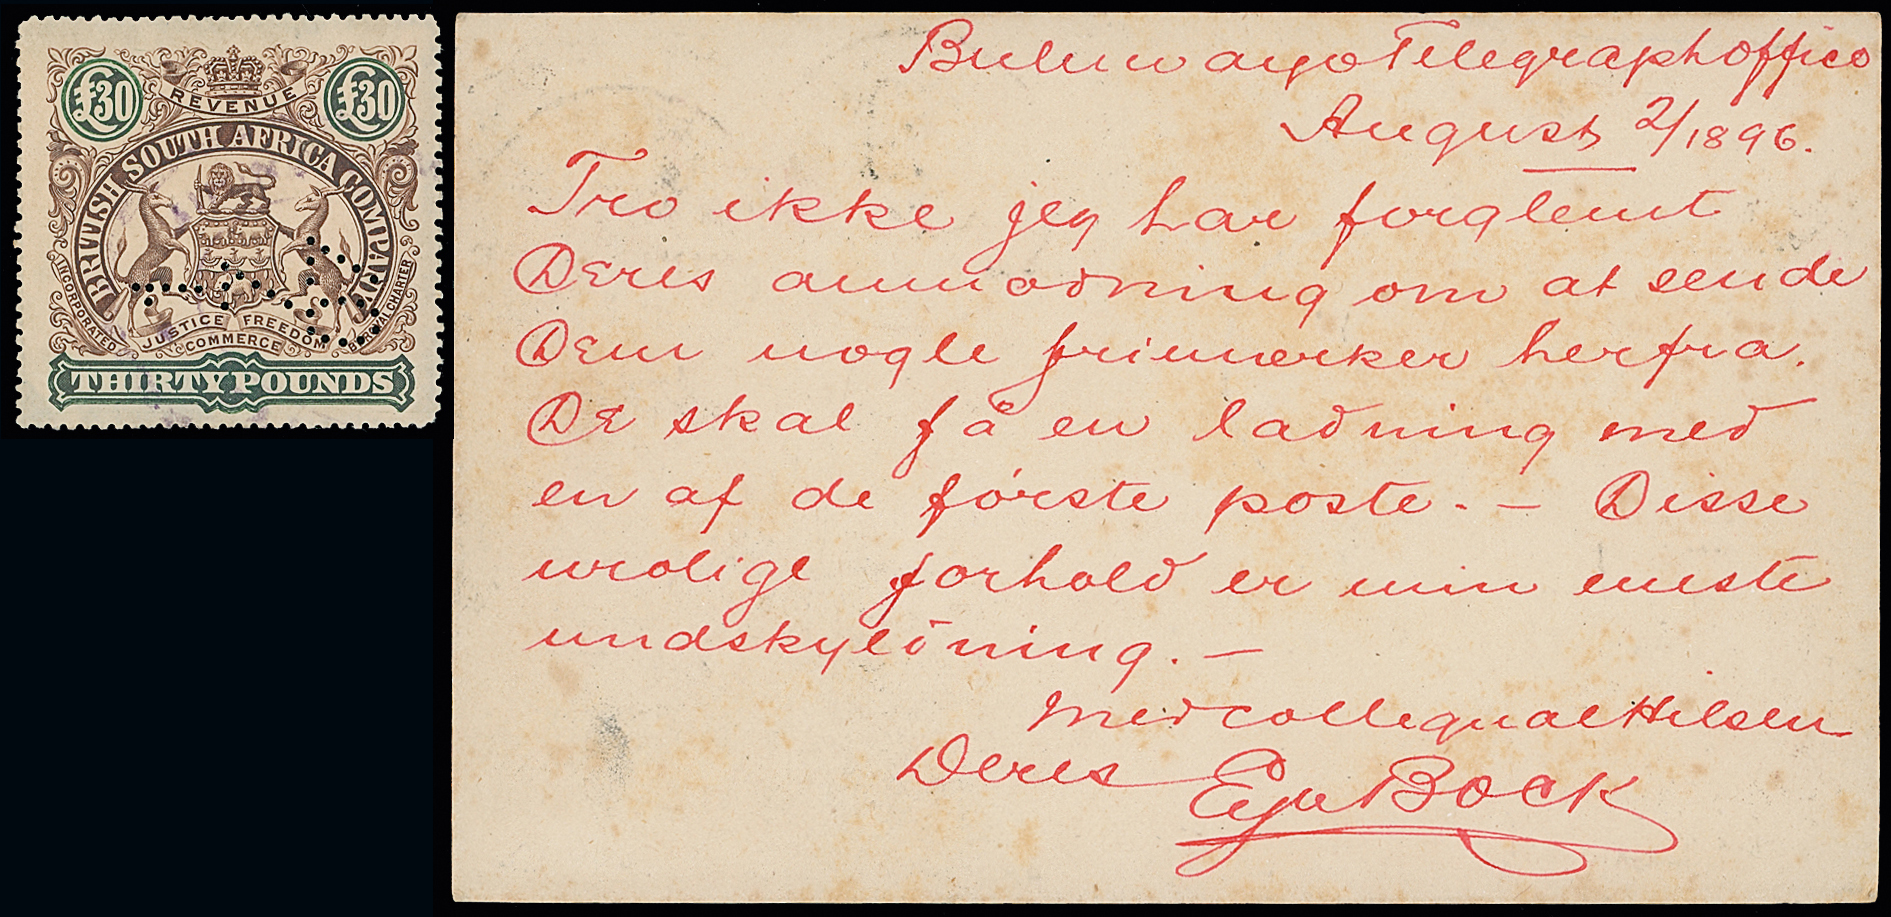 £30
£30
REVENUE
BRITISH SOUTH AFRICA COMPANY
INCORPORATED
BY ROYAL CHARTER
JUSTICE FREEDOM
COMMERCE
THIRTY POUNDS
Buluwayo Telegraphoffice
August 2/1896.
Tro ikke jeg har forglemt
Deres anmodning om at sende
Dem nogle frimærker herfra.
De skal få en ladning med
en af de første poste. — Disse
urolige forhold er min eneste
undskyldning. —
Med collegual Hilsen
Deres
Bock